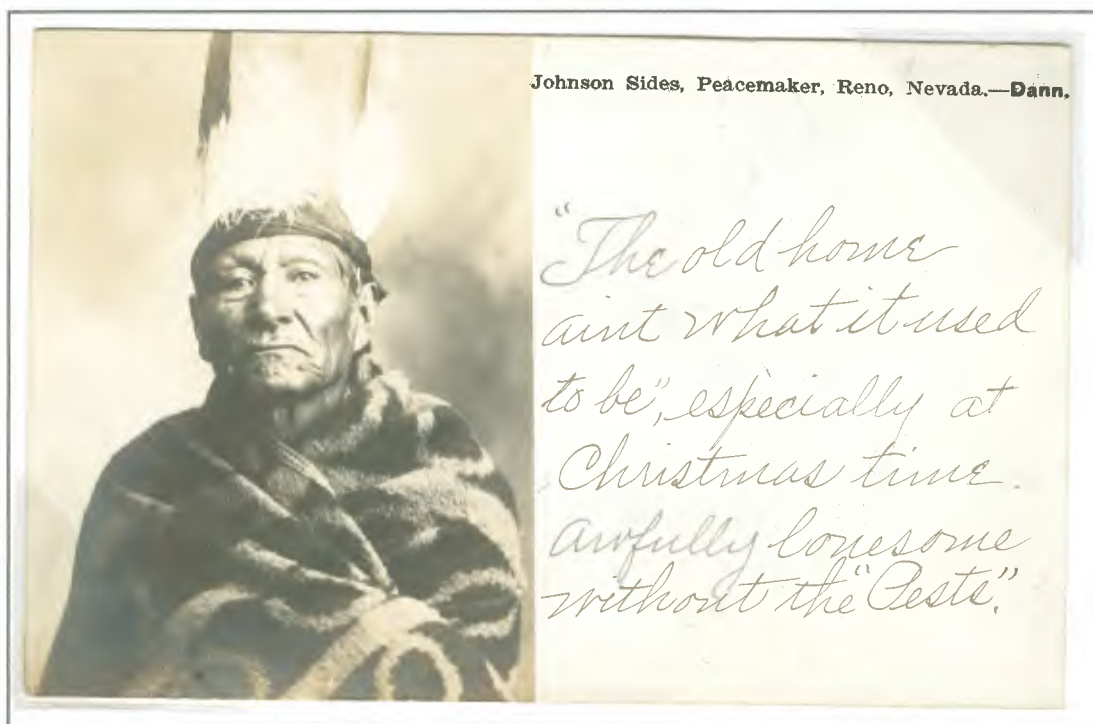 Johnson Sides, Peacemaker, Reno, Nevada.—Dann.
"The old home
aint what it used
to be", especially at
Christmas time.
Awfully lonesome
without the "Pests".